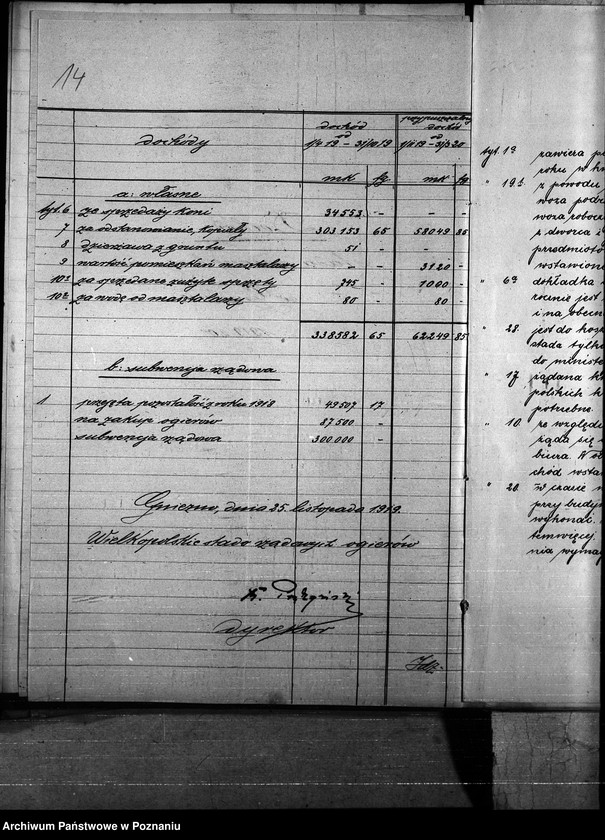 14
dochody
dochód od 1/4 19 – 31/10 19
przypuszczalny dochód od 1/11 19 – 31/3 20
mk fg mk fg
a: własne
tyt. 6 ze sprzedaży koni 34553 – – –
7 za odstanowianie, kopulty 303153 65 58049 85
8 dzierżawa z gruntu 51 – – –
9 wartość pomieszkań masztalarzy – – 3120 –
10a za sprzedane zużyte sprzęty 795 – 1000 –
10b za wodę od masztalarzy 80 – 80 –
338582 65 62249 85
b: subwencja rządowa
1 reszta pozostałości z roku 1918 49507 17
na zakup ogierów 87500 –
subwencja rządowa 300.000 –
Gniezno, dnia 25. listopada 1919.
Wielkopolskie stado rządowych ogierów
dyrektor
tyt. 1a zawiera
roku w
" 19b. z powodu
woza
woza robocz
z dworca i
przedmiotó
wstawiono
" 6a dokładka
rocznie jest
i na obecn
" 28. jest do
stada tylko
do minister
" 17 żądana
polskich
potrzebne.
" 10. ze względu
rząda się
biura. W
chód wsta
" 20. W czasie
przy budyn
wykonać.
temwięcej
nia wymag
Archiwum Państwowe w Poznaniu